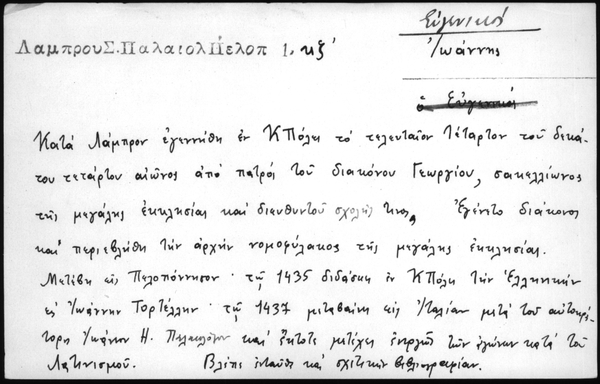 Εὐγενικός
ΛαμπρουΣ.ΠαλαιολΠελοπ 1. κξ'
Ἰωάννης
ὁ Εὐγενικός
Κατά Λάμπρον ἐγεννήθη ἐν ΚΠόλει τό τελευταῖον τέταρτον τοῦ δεκά-
του τετάρτου αἰῶνος ἀπό πατρός τοῦ διακόνου Γεωργίου, σακελλίωνος
τῆς μεγάλης ἐκκλησίας καί διευθυντοῦ σχολῆς τινος, Ἐγένετο διάκονος
καί περιεβλήθη τήν ἀρχήν νομοφύλακος τῆς μεγάλης ἐκκλησίας.
Μετέβη εἰς Πελοπόννησον · τῷ 1435 διδάσκει ἐν ΚΠόλει τήν Ἑλληνικήν
εἰς Ἰωάννην Τορτέλλην · τῷ 1437 μεταβαίνει εἰς Ἰταλίαν μετά τοῦ αὐτοκρά-
τορος Ἰωάννου Η. Παλαιολόγου καί ἔκτοτε μετέχει ἐνεργῶς τῶν ἀγώνων κατά τοῦ
Λατινισμοῦ. Βλέπε ἐνταῦθα καί σχετικήν βιβλιογραφίαν.